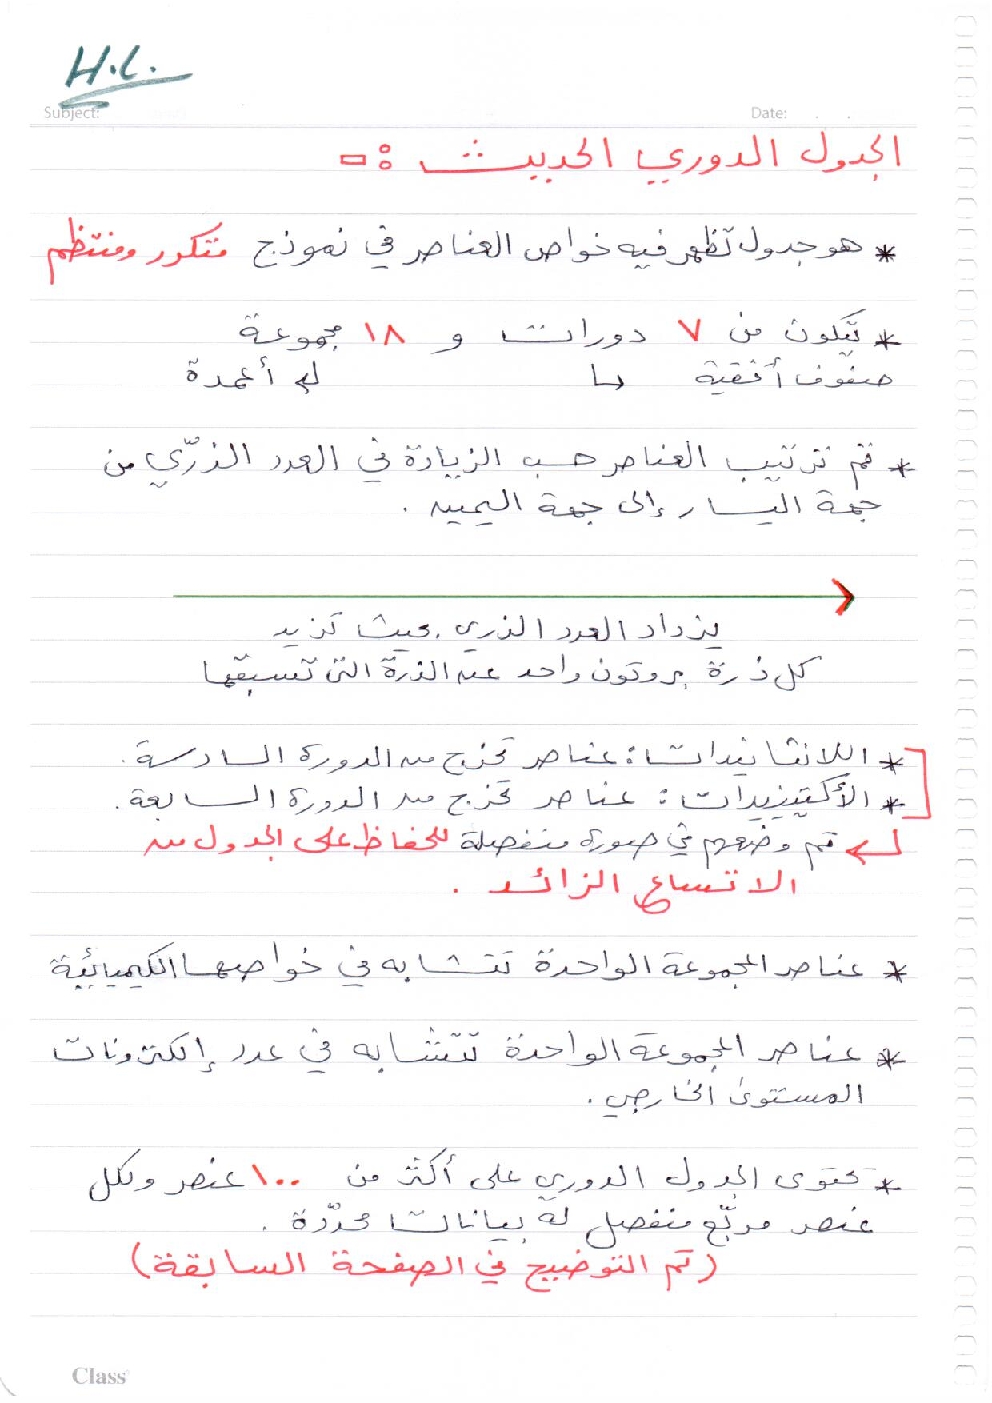 H.L.
Subject:
Date: . .
الجدول الدوري الحديث :-
* هو جدول تظهر فيه خواص العناصر في نموذج متكرر ومنتظم
* يتكون من ٧ دورات و ١٨ مجموعة
صفوف أفقية أعمدة
* تم ترتيب العناصر حسب الزيادة في العدد الذرّي من
جهة اليسار إلى جهة اليمين .
يزداد العدد الذري بحيث تزيد
كل ذرة بروتون واحد عن الذرة التي تسبقها
* اللانثانيدات : عناصر تخرج من الدورة السادسة .
* الأكتينيدات : عناصر تخرج من الدورة السابعة .
تم وضعهم في صورة منفصلة للحفاظ على الجدول من
الاتساع الزائد .
* عناصر المجموعة الواحدة تتشابه في خواصها الكيميائية
* عناصر المجموعة الواحدة تتشابه في عدد إلكترونات
المستوى الخارجي .
* يحتوى الجدول الدوري على أكثر من ١٠٠ عنصر ولكل
عنصر مربّع منفصل له بيانات محدّدة .
(تم التوضيح في الصفحة السابقة)
Class